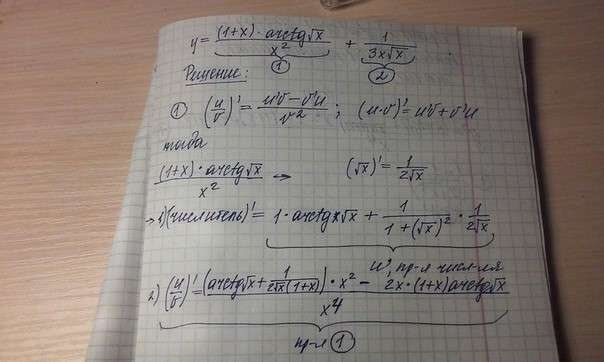 y = ((1+x) · arctg√x)/x² + 1/(3x√x) .
① ②
Решение:
① (u/v)' = (u'v − v'u)/v² ; (u·v)' = u'v + v'u
тогда
((1+x) · arctg√x)/x² → (√x)' = 1/(2√x)
→ 1) (числитель)' = 1 · arctg√x + 1/(1+(√x)²) · 1/(2√x)
u', пр-я числ-ля
2) (u/v)' = ((arctg√x + 1/(2√x(1+x))) · x² − 2x · (1+x)arctg√x)/x⁴
пр-я ①